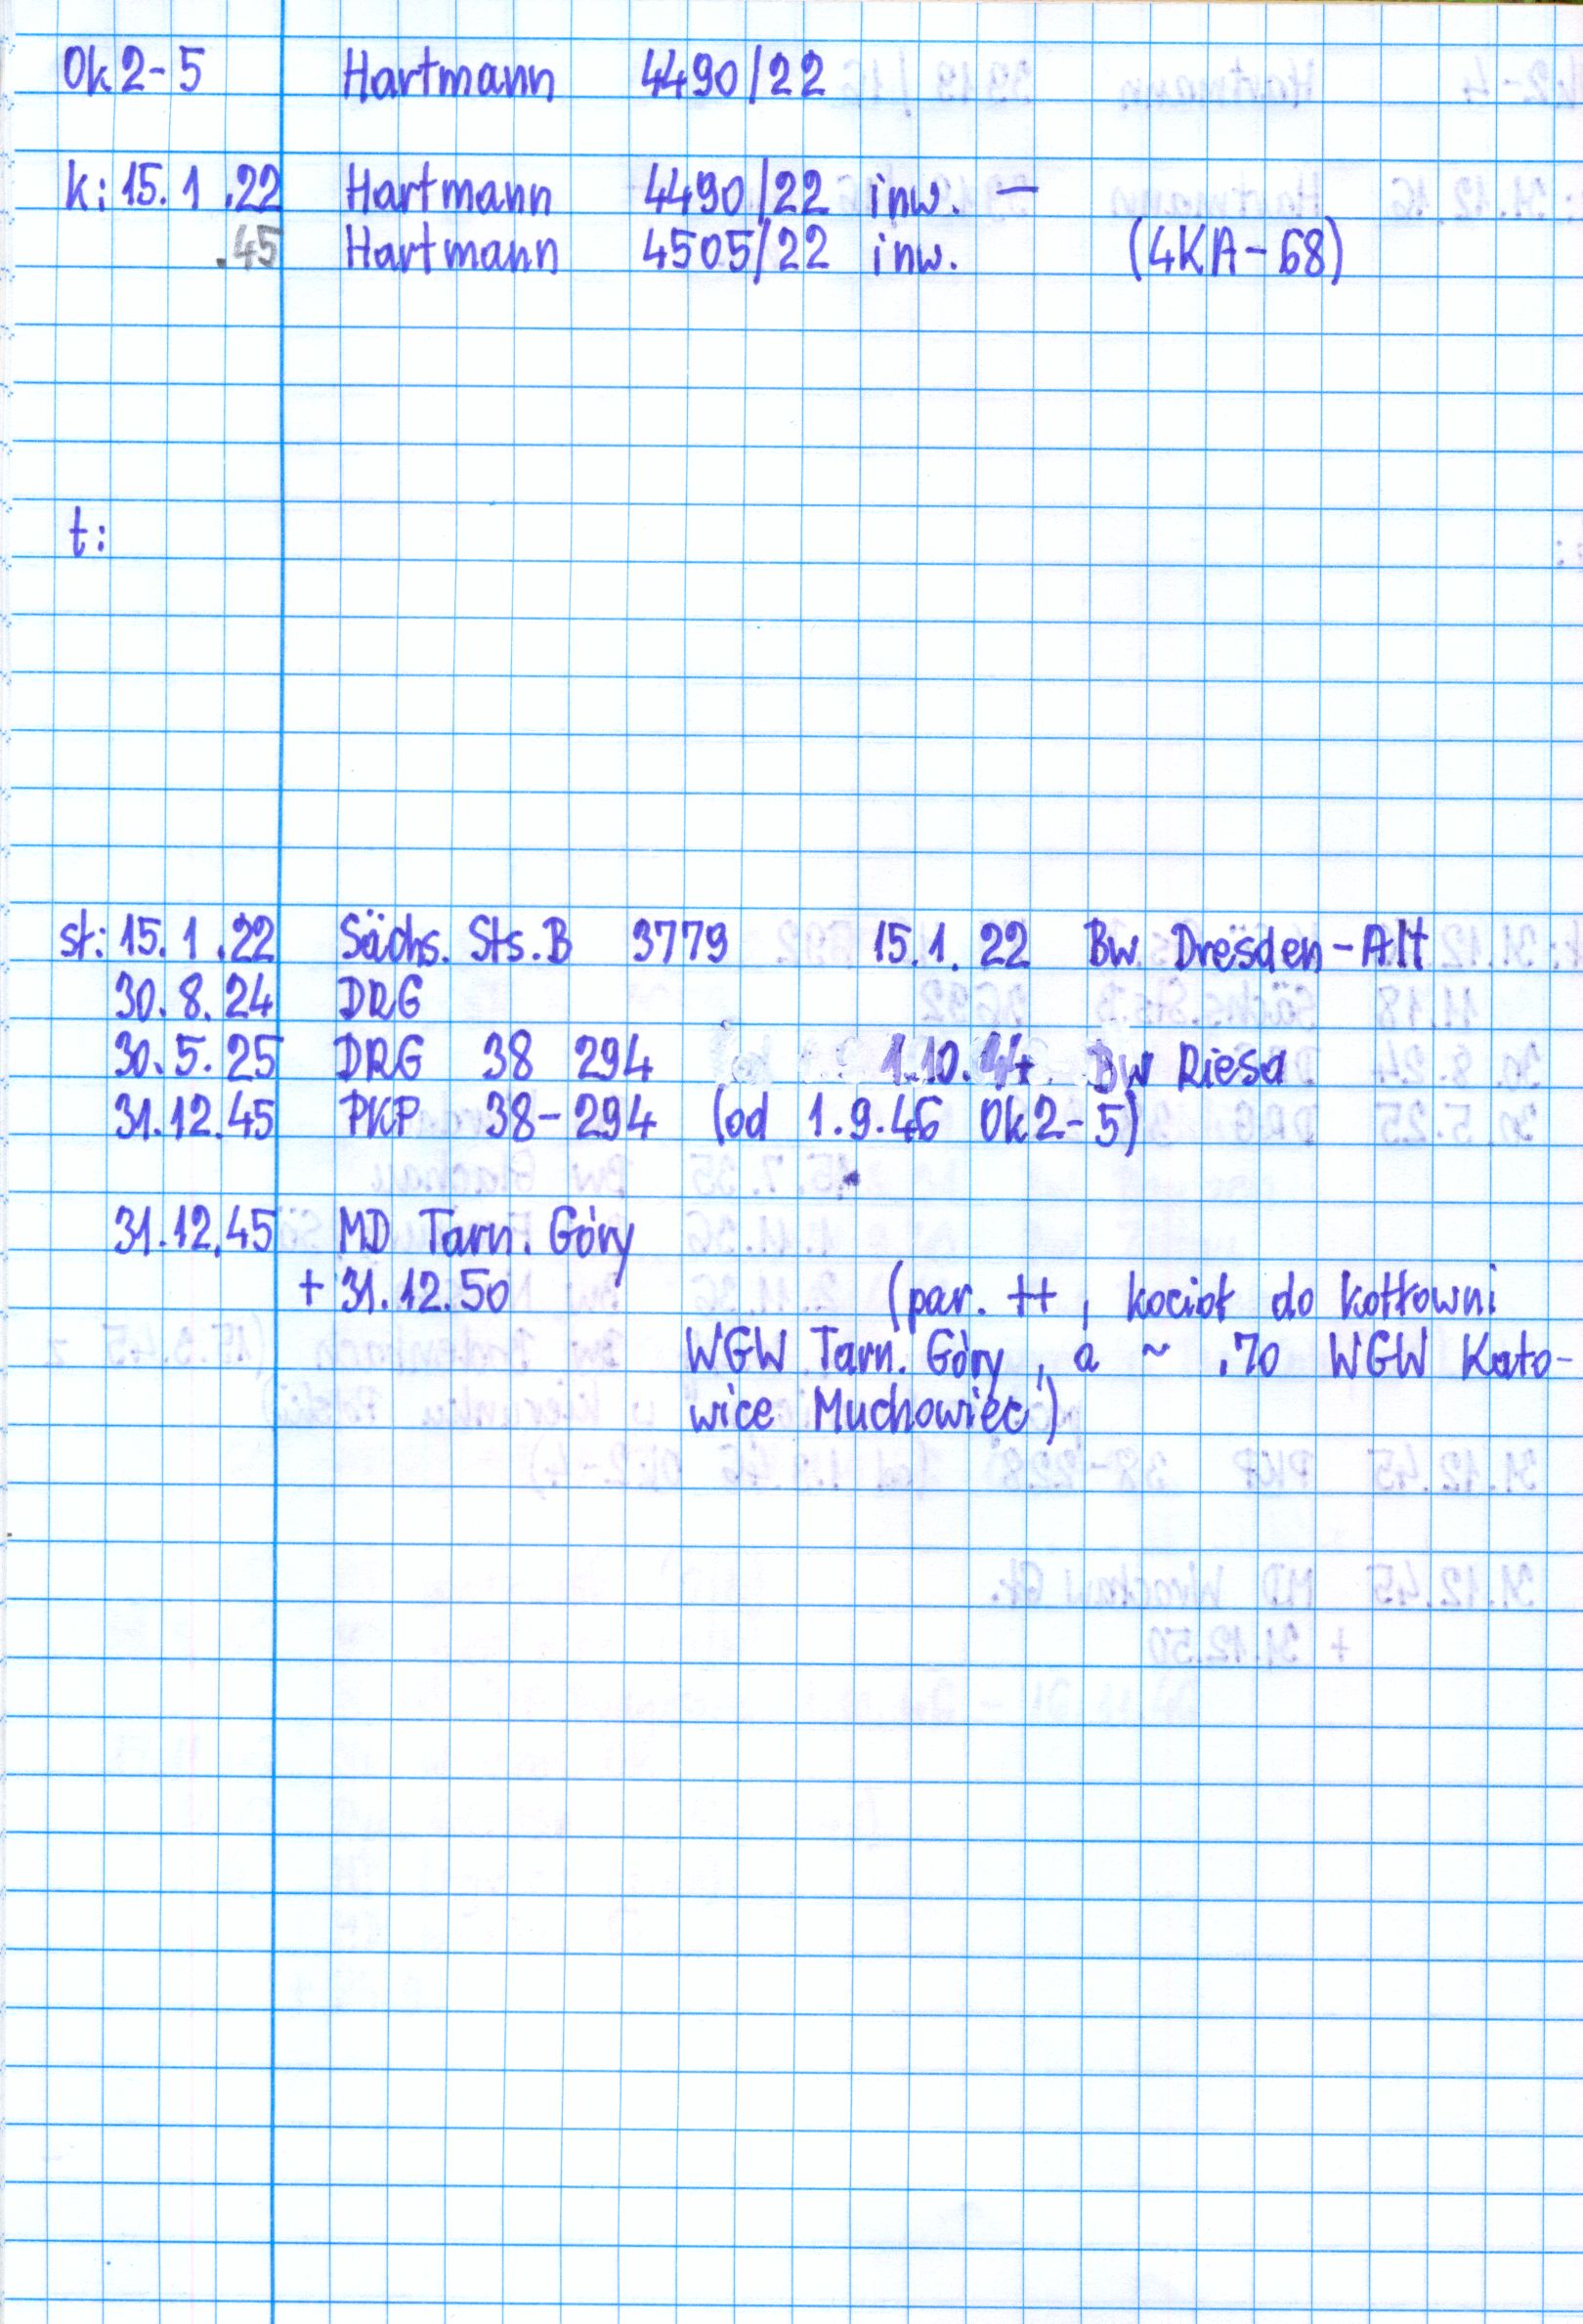 Ok2-5 Hartmann 4490/22
k: 15.1.22 Hartmann 4490/22 inw. —
.45 Hartmann 4505/22 inw. (4KA-68)
t:
st: 15.1.22 Sächs. Sts.B 3779 15.1.22 Bw Dresden-Alt
30.8.24 DRG
30.5.25 DRG 38 294 1.10.44 Bw Riesa
31.12.45 PKP 38-294 (od 1.9.46 Ok2-5)
31.12.45 MD Tarn. Góry
+ 31.12.50 (par. ++, kocioł do kotłowni
WGW Tarn. Góry, a ~ .70 WGW Kato-
wice Muchowiec)